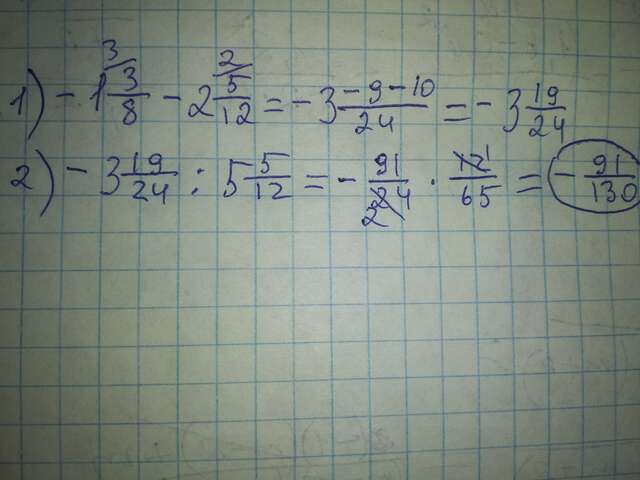 1) - 1 3/8 - 2 5/12 = - 3 -9-10/24 = - 3 19/24
2) - 3 19/24 : 5 5/12 = - 91/24 · 12/65 = - 91/130